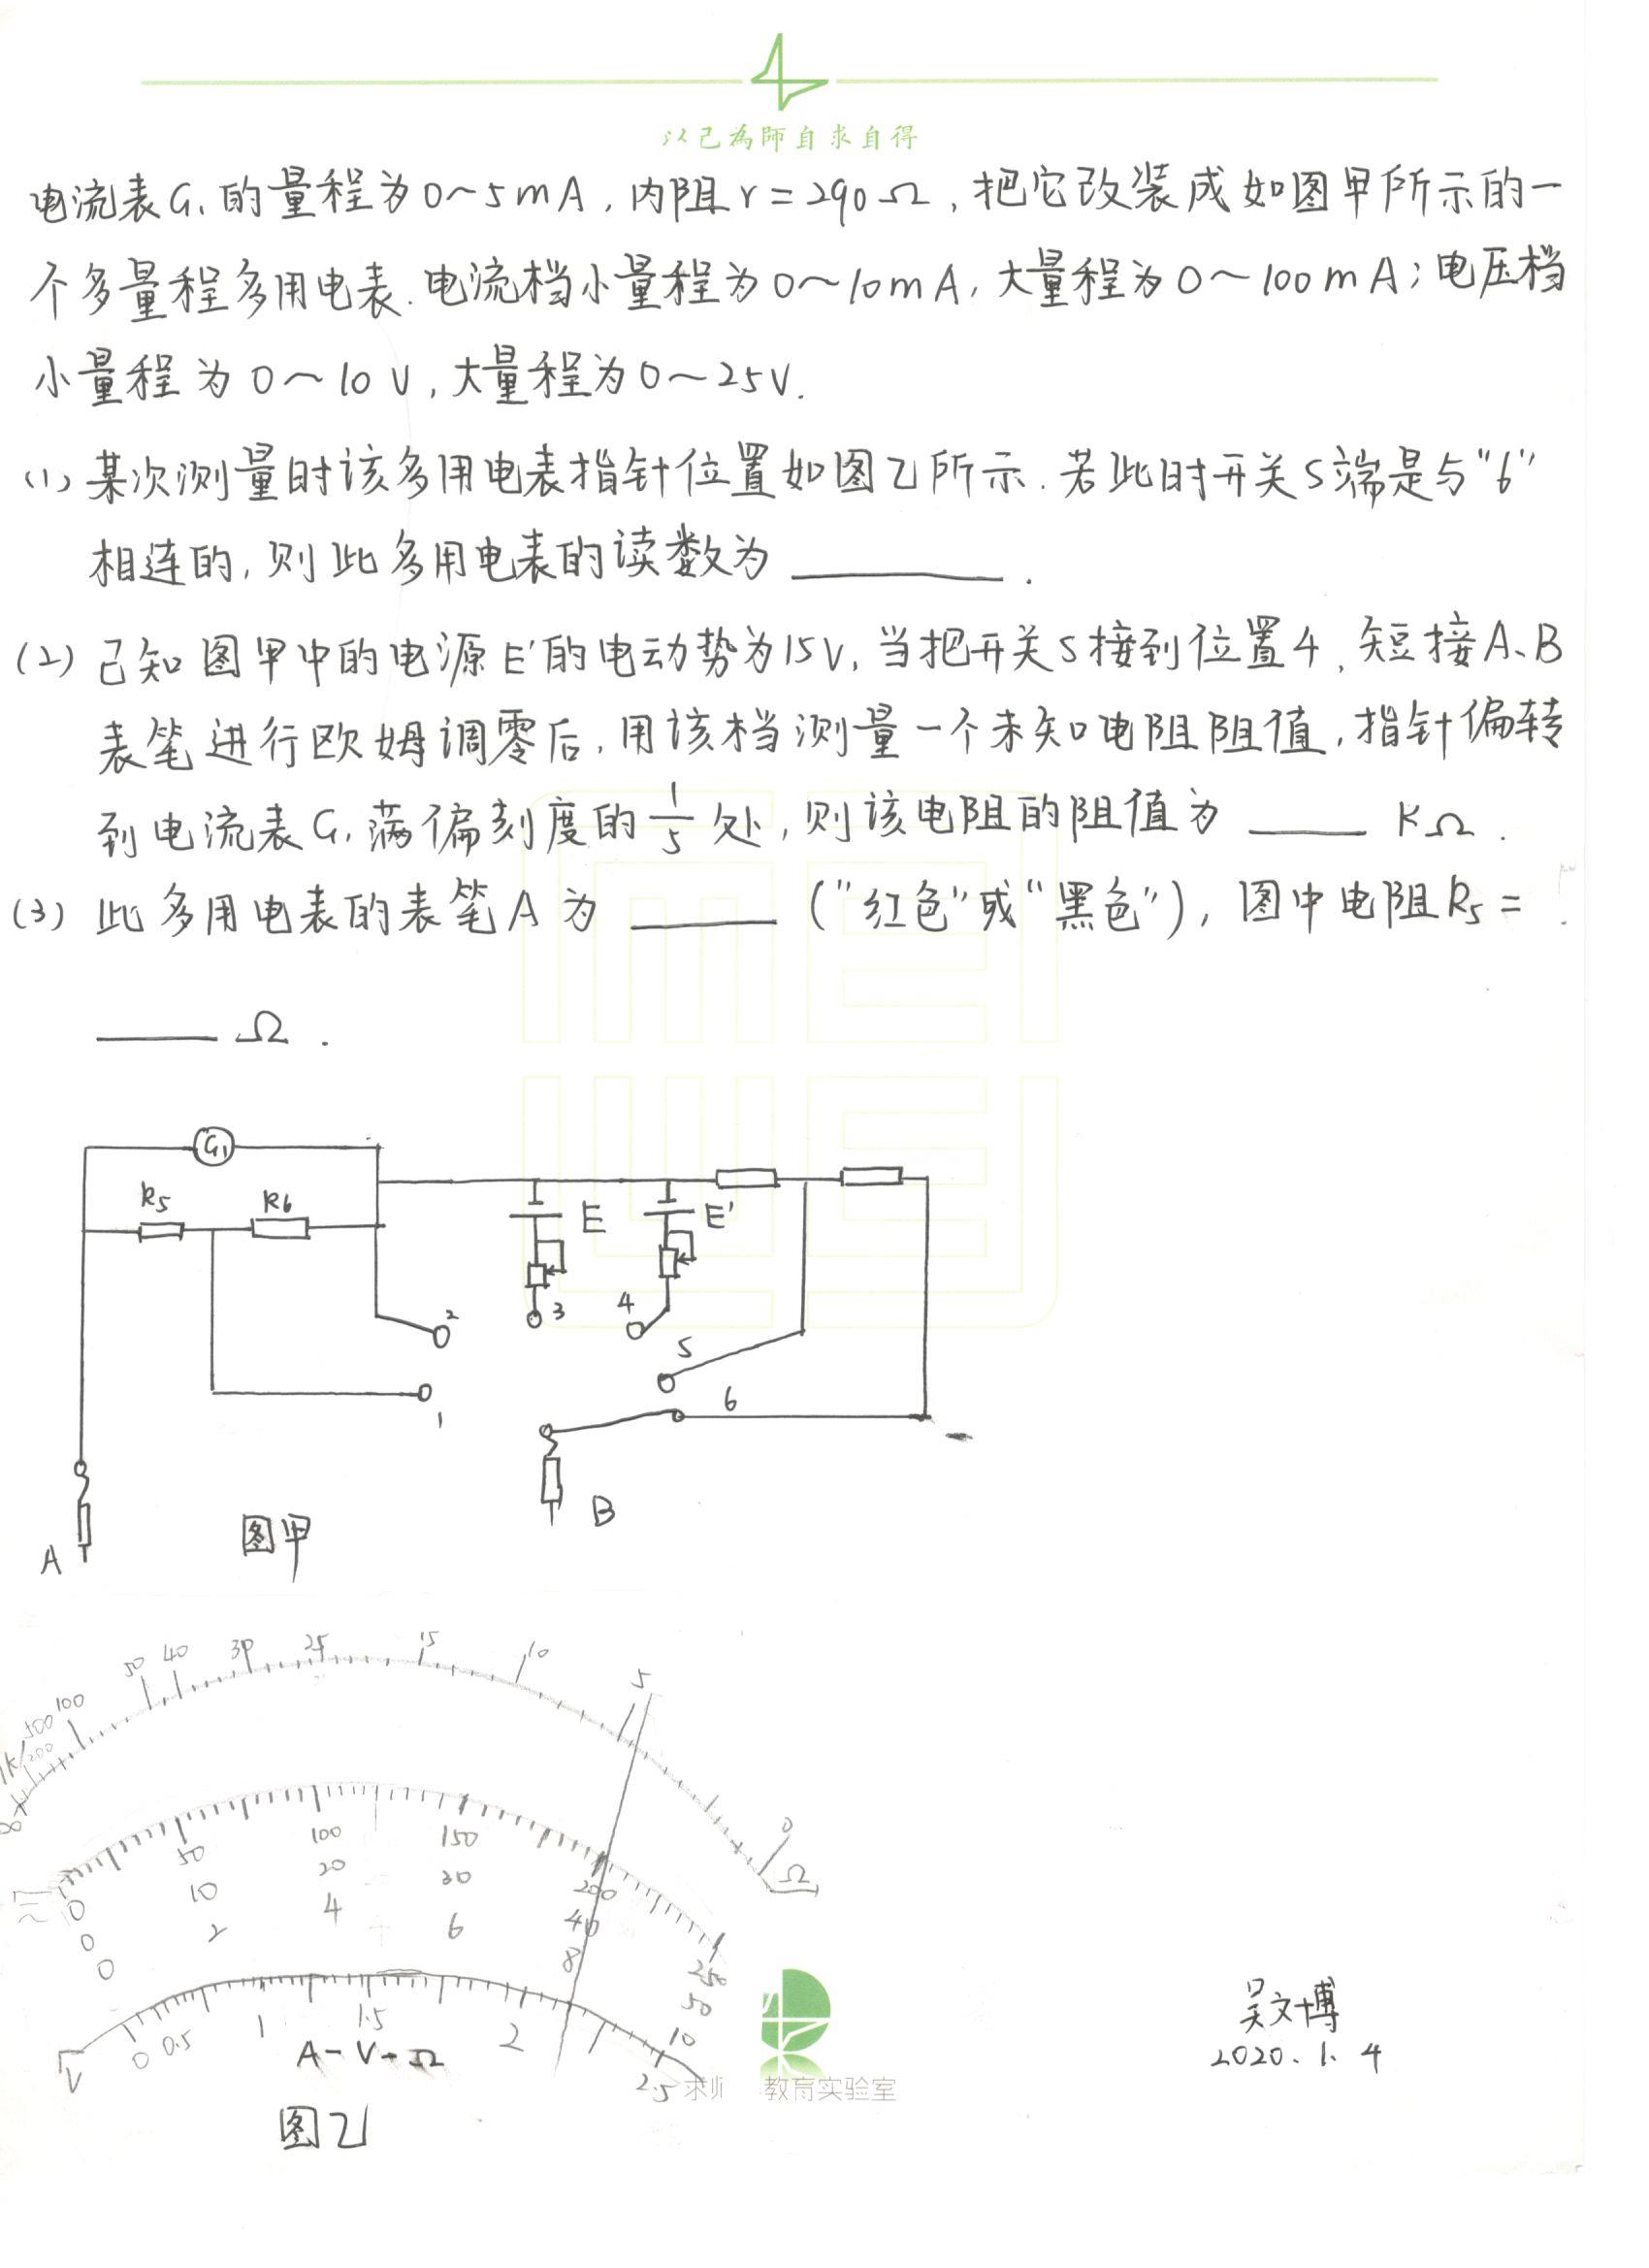 以己為師自求自得
电流表G₁的量程为0~5mA,内阻r=290Ω,把它改装成如图甲所示的一
个多量程多用电表.电流档小量程为0~10mA,大量程为0~100mA;电压档
小量程为0~10V,大量程为0~25V.
(1)某次测量时该多用电表指针位置如图乙所示.若此时开关S端是与"6"
相连的,则此多用电表的读数为________.
(2)已知图甲中的电源E'的电动势为15V,当把开关S接到位置4,短接A、B
表笔进行欧姆调零后,用该档测量一个未知电阻阻值,指针偏转
到电流表G₁满偏刻度的1/5处,则该电阻的阻值为____KΩ.
(3)此多用电表的表笔A为____("红色"或"黑色"),图中电阻R5=
____Ω.
G₁
R5 R6
E E'
2 3 4
5
1 6
A 图甲 B
1K 500 200 100 50 40 30 25 15 10 5 0
∞ Ω
0 50 100 150 200 250
0 10 20 30 40 50
0 2 4 6 8 10
V 0 0.5 1 1.5 2 2.5
A-V-Ω
图乙
吴文博
2020.1.4
教育实验室